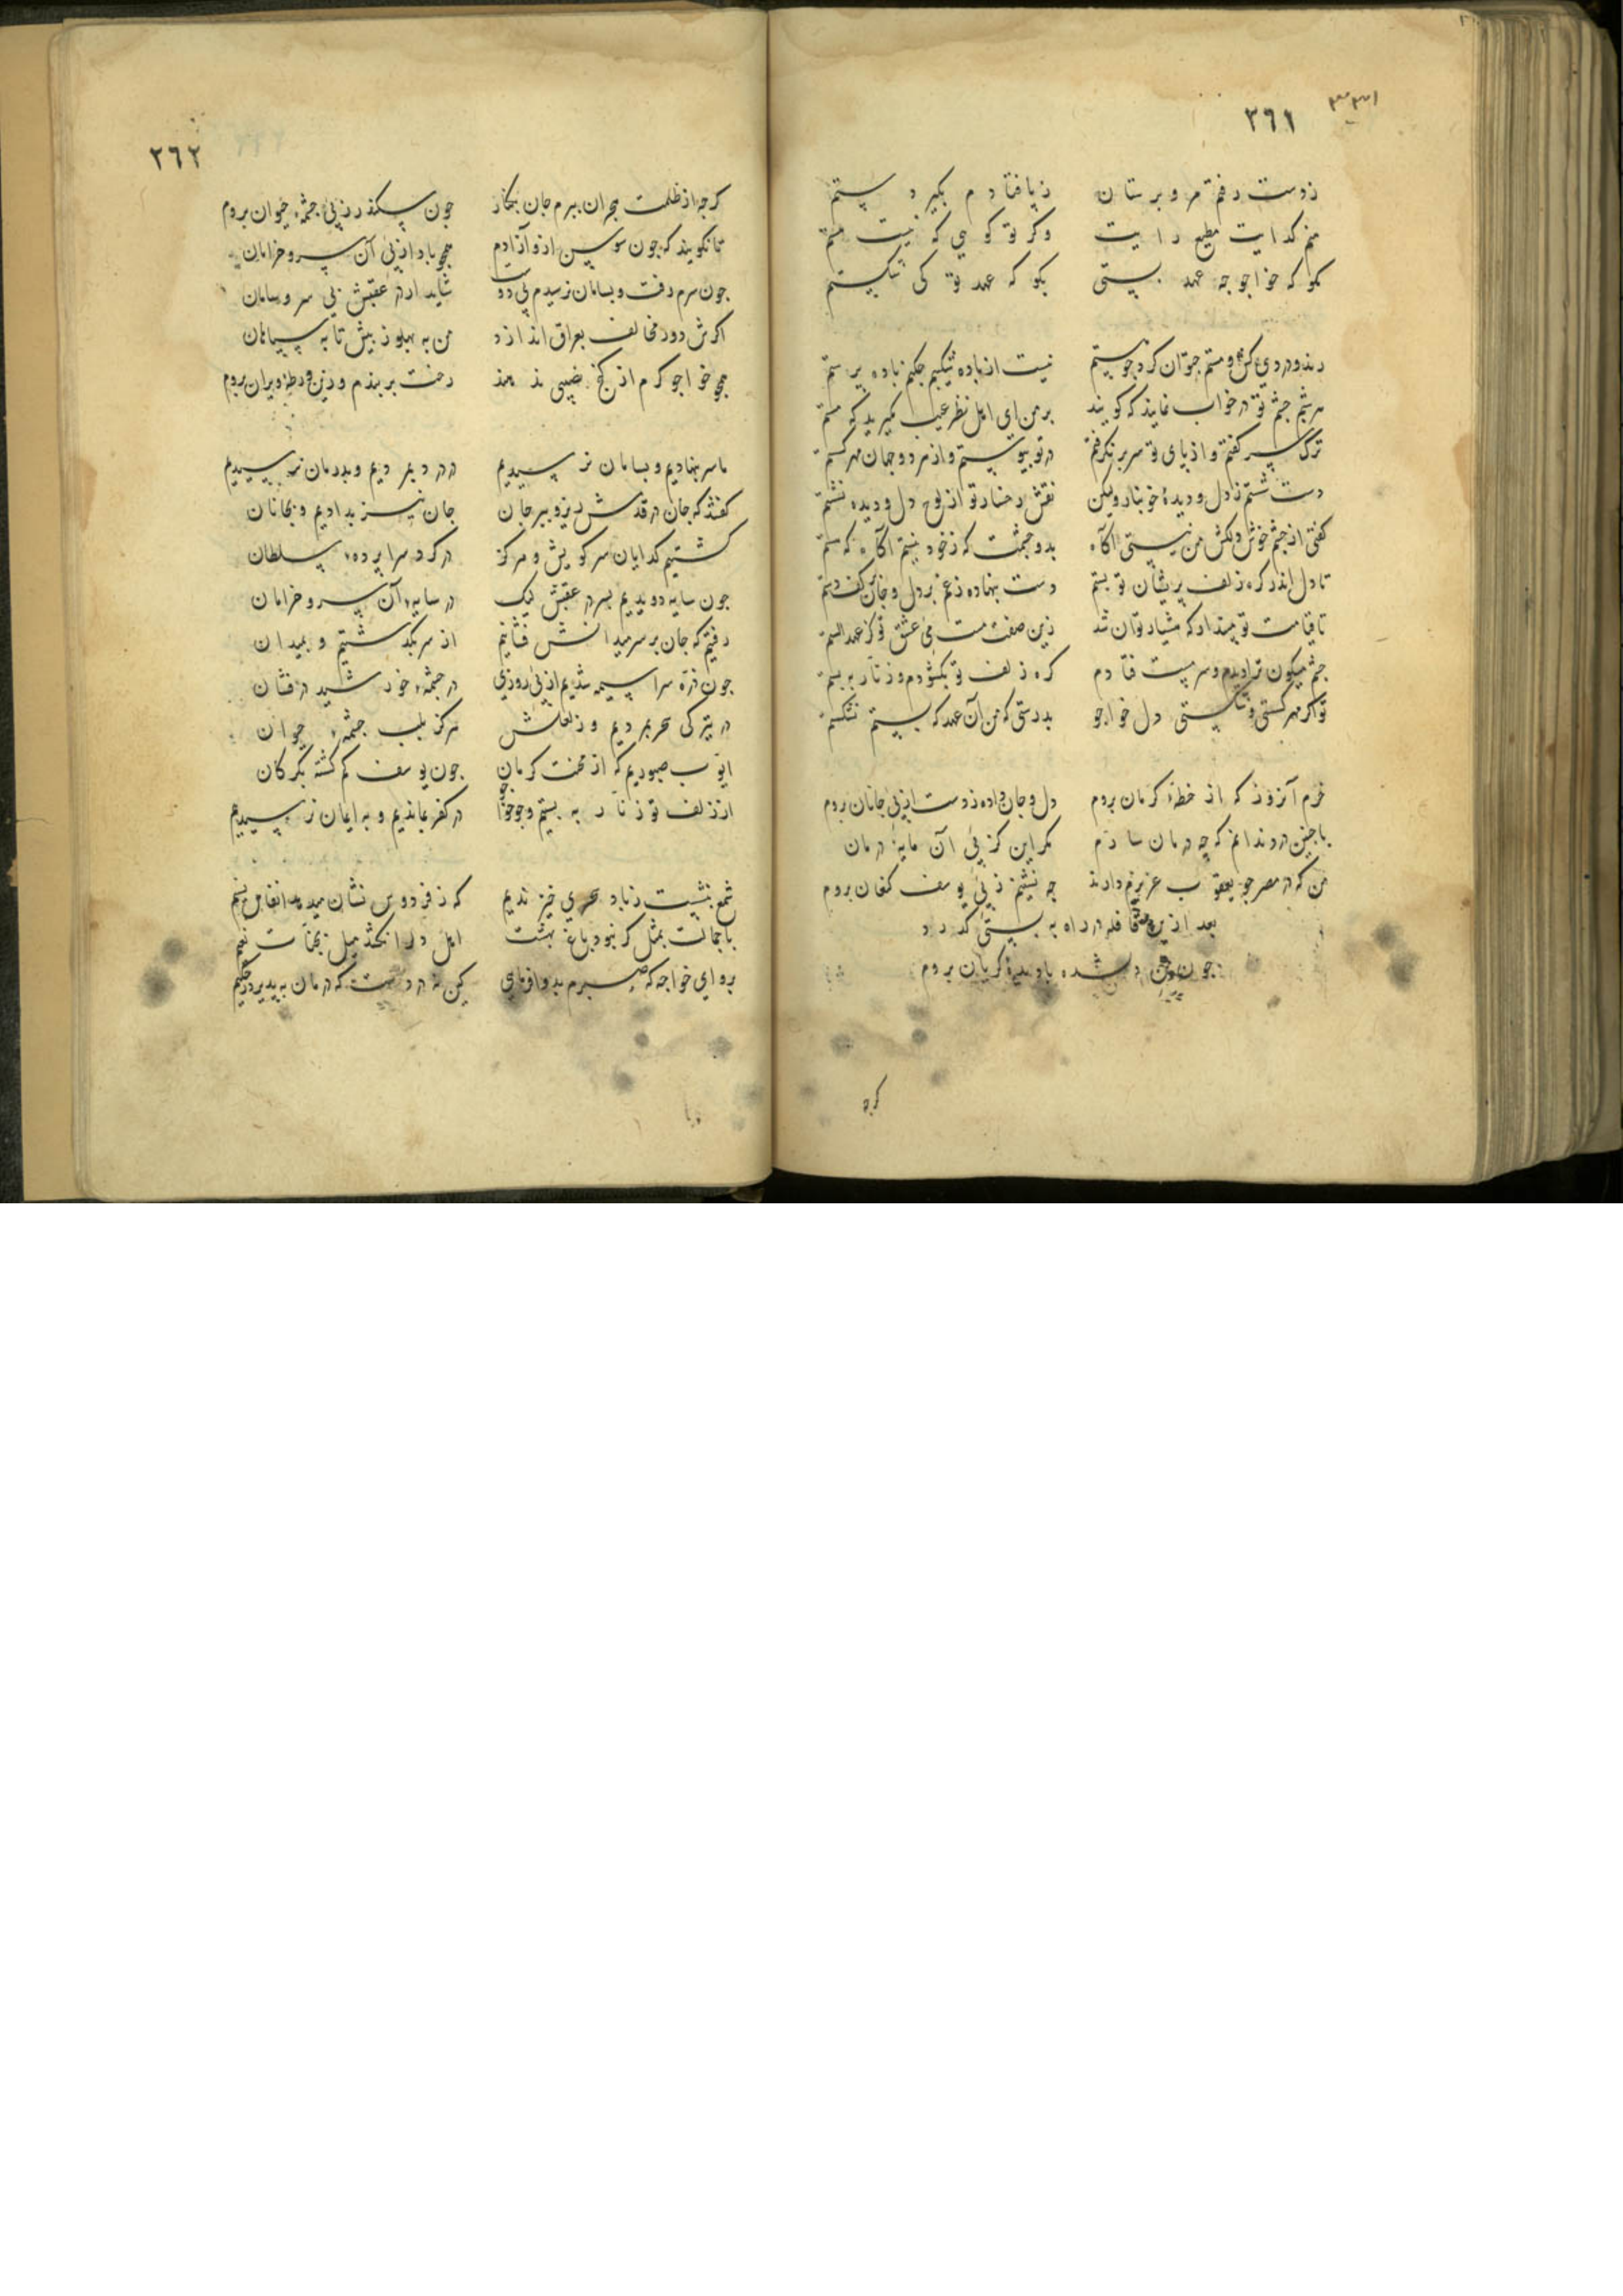 ٣٦١
ز دست رفتم مرو بر ستان ز پا فتادم بگیر دستم
منم کدایت مطیع رایت وکر تو کویی که نیست هستم
مکو که خواجو جه عهد بستی بکو که عهد تو کی شکستم
رند و دردی کش و مستم جتوان کرد جو هستم نیست از باده شکیبم جکنم باده پرستم
هر شبم جشم تو در خواب نماید که کویند بر من ای اهل نظر عیب مکیرید که مستم
ترک سر کفتم و از پای تو سر بر نکرفتم در تو پیوستم و از هر دو جهان مهر کسستم
دست شستم ز دل و دیدهٔ خونبار ولیکن نقش رخسار تو از لوح دل و دیده نشستم
کفتی از جشم خوش دلکش من نیستی آکاه بدو جشمت که ز خود نیستم آکاه که هستم
تا دل اندر کره زلف پریشان تو بستم دست بنهاده ز غم بر دل و جان بر کف دستم
تا قیامت تو مپندار که هشیار توان شد زین صفت مست می عشق تو کز عهد الستم
جشم میکون ترا دیدم و سرمست فتادم کره زلف تو بکشودم و زنار ببستم
تو اکر مهر کسستی و شکستی دل خواجو بدرستی که من آن عهد که بستم نشکستم
خرم آنروز که از خطهٔ کرمان بروم دل و جان داده ز دست از پی جانان بروم
با جنین درد ندانم که جه درمان سازم مکر این کز پی آن مایهٔ درمان
من که در مصر جو یعقوب عزیزم دارند جه نشینم ز پی یوسف کنعان بروم
بعد ازین قافله در راه به کشتی کذرد
جون من دلشده با دیدهٔ کریان بروم
کرجه
٣٦٢
کرجه از ظلمت هجران ببرم جان بکنار جون سکندر ز پی جشمهٔ حیوان بروم
تا نکویند که جون سوسن ازو آزادم همجو باد از پی آن سرو خرامان
جون سرم رفت و بسامان نرسیدم بی دوست شاید ار در عقبش بی سر و سامان
اکرش دور مخالف بعراق اندازد من به پهلو ز پیش تا به سپاهان
همجو خواجو کرم از کنج نصیبی ندهند رخت بر بندم و زین ویران بروم
ما سر بنهادیم و بسامان نرسیدیم در درد بمردیم و بدرمان نرسیدیم
کفتند که جان در قدمش ریز و ببر جان جان نیز بدادیم و بجانان
کشتیم کدایان سر کویش و هرکز در کرد سراپردهٔ سلطان
جون سایه دویدیم بسر در عقبش لیک در سایهٔ آن سرو خرامان
رفتیم که جان بر سر میدانش فشانیم از سر بکذشتیم و بمیدان
جون ذره سراسیمه شدیم از پی روزی در جشمهٔ خورشید درفشان
در تیرکی هجر بمردیم و ز لعلش هرکز بلب جشمهٔ حیوان
ایوب صبوریم که از محنت کرمان جون یوسف کم کشته بکرکان
از زلف تو زنار به بستیم و جو خواجو در کفر بماندیم و به ایمان نرسیدیم
شمع بنشست ز باد سحری خیز ندیم که ز فردوس نشان میدهد انفاس نسیم
با جمالت بمثل کر نبود باغ بهشت اهل دل را نکشد میل بجنات نعیم
برو ای خواجه که صبرم بدوا فرمایی کین نه دردیست که درمان بپذیرد ز حکیم